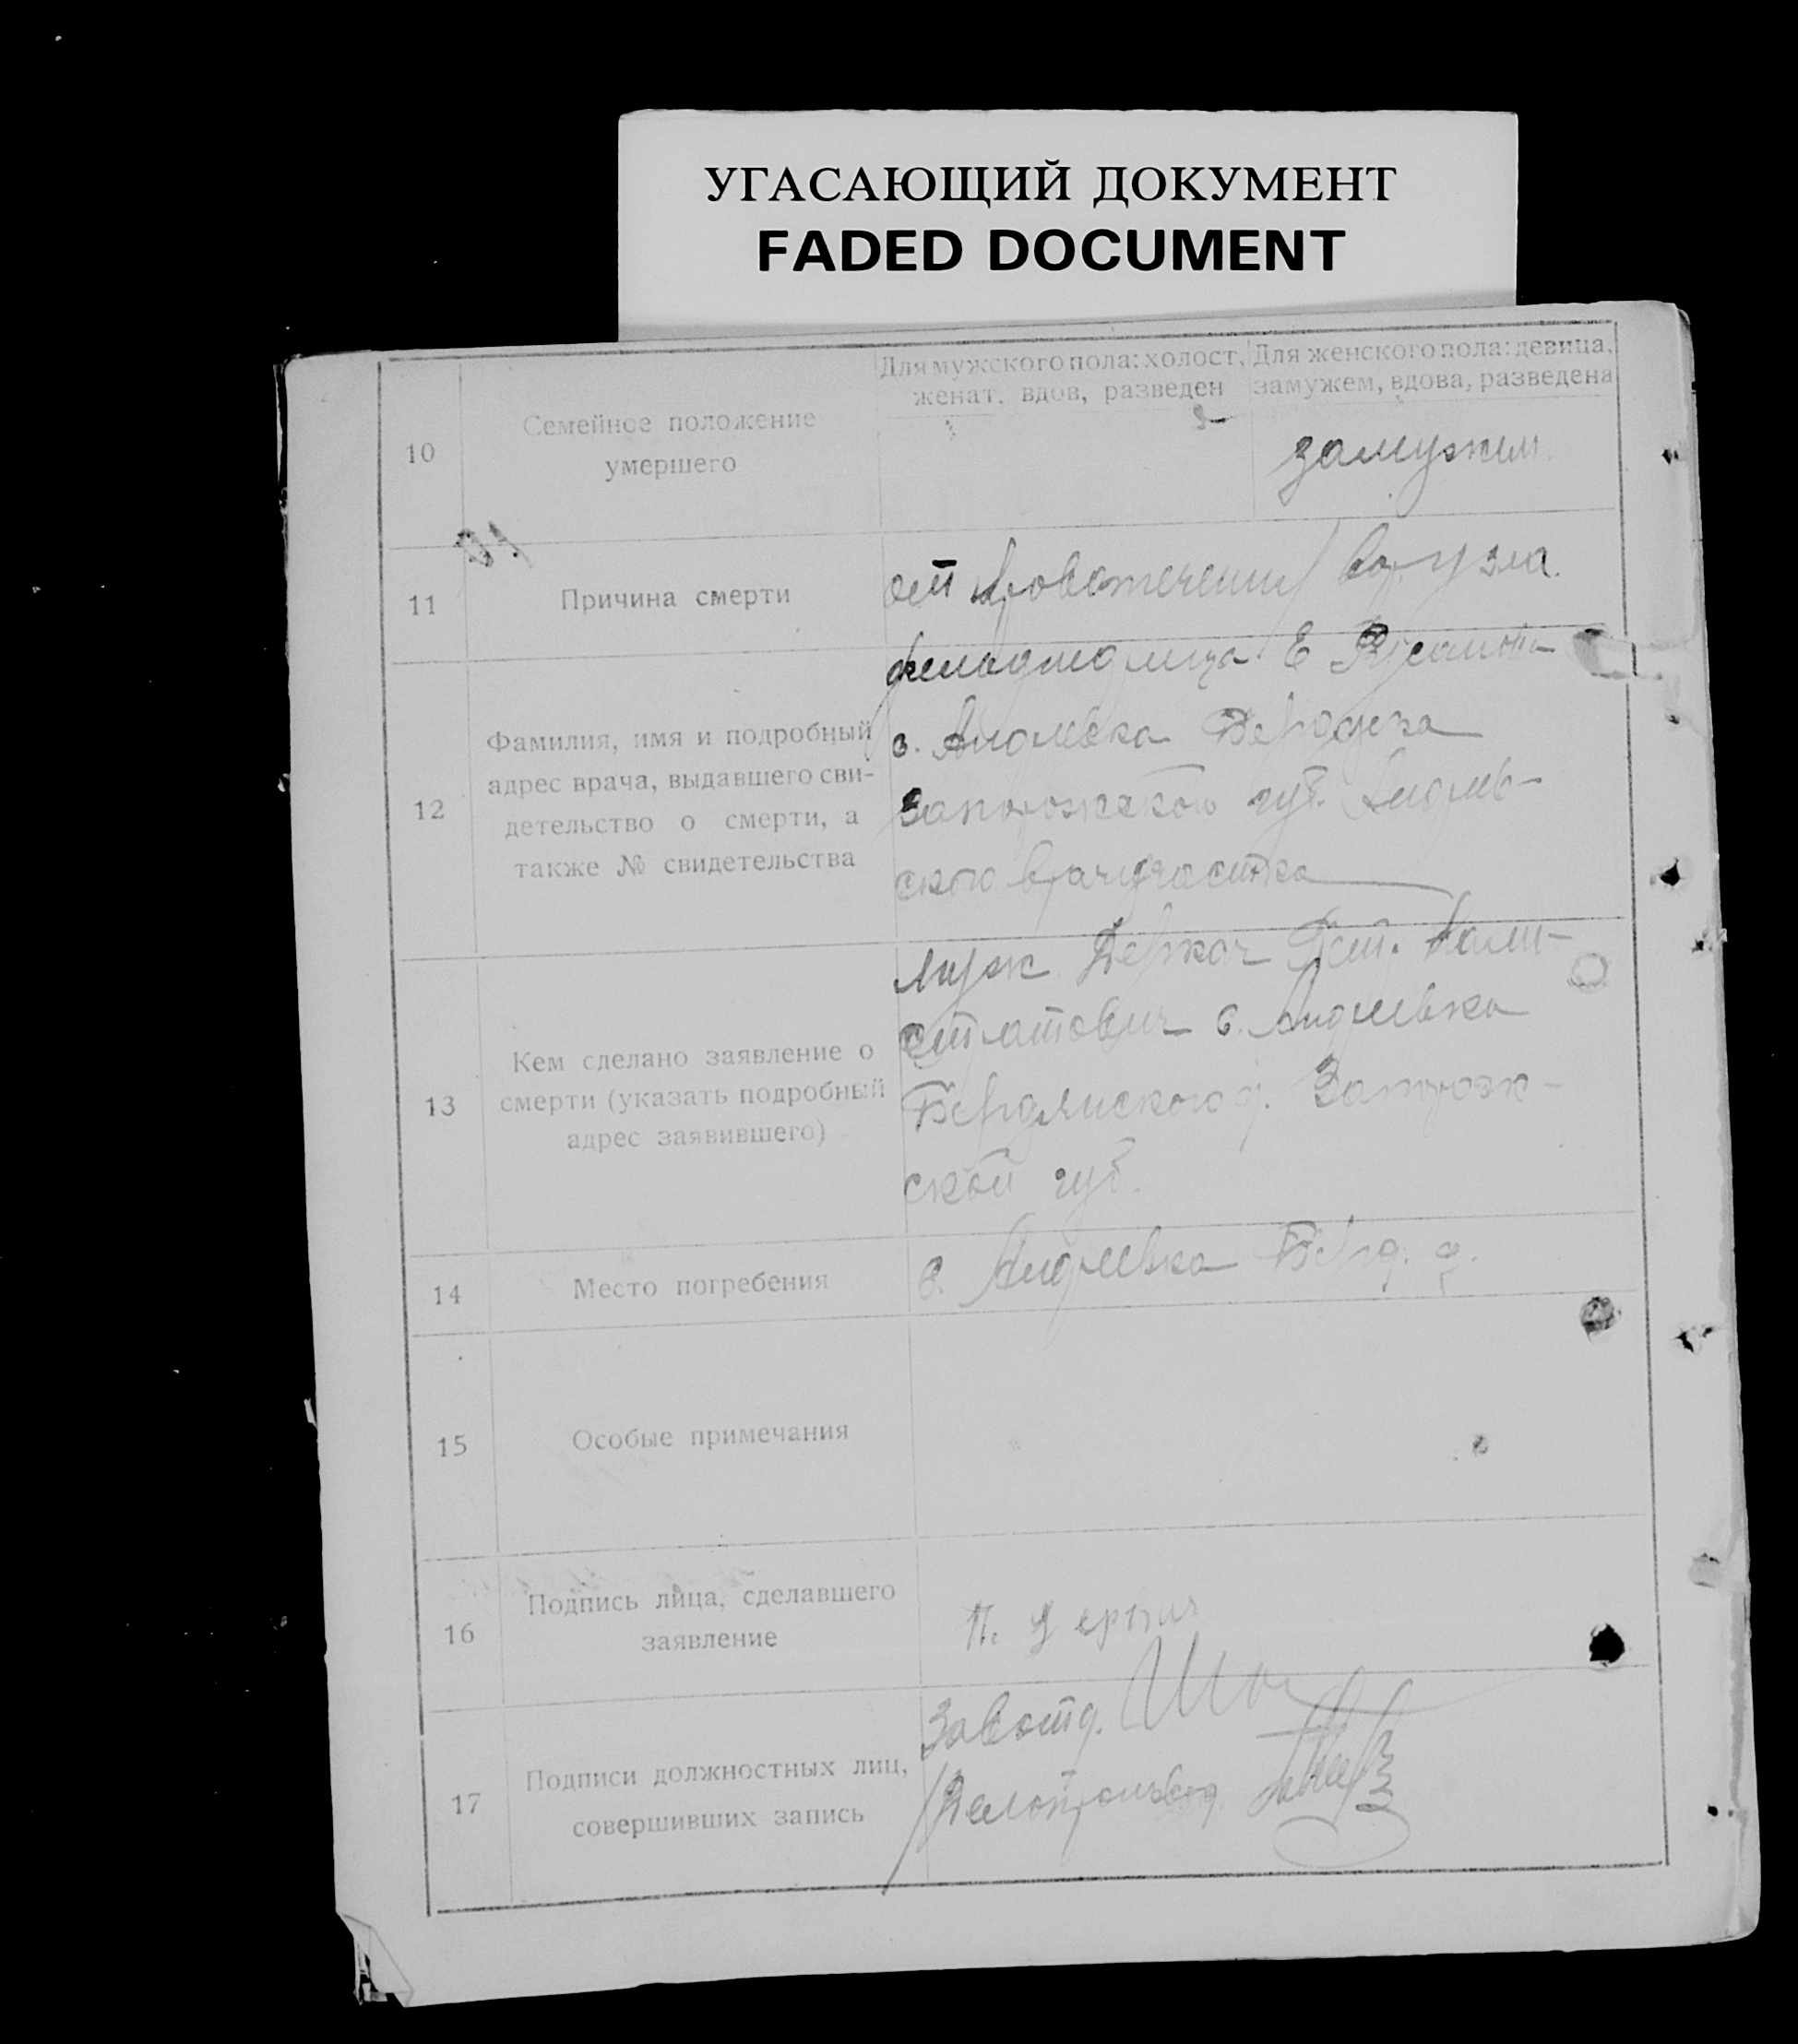 УГАСАЮЩИЙ ДОКУМЕНТ
FADED DOCUMENT
10
Семейное положение
умершего
Для мужского пола: холост,
женат, вдов, разведен
Для женского пола: девица,
замужем, вдова, разведена
замужем
11
Причина смерти
от кровотечения
12
Фамилия, имя и подробный
адрес врача, выдавшего сви-
детельство о смерти, а
также № свидетельства
Е
с. Андреевка
Запорожской губ. Андреев-
ского врачучастка
13
Кем сделано заявление о
смерти (указать подробный
адрес заявившего)
муж Деркач
с. Андреевка
Бердянского у. Запорож-
ской губ.
14
Место погребения
с. Андреевка Берд. у.
15
Особые примечания
16
Подпись лица, сделавшего
заявление
П. Деркач
17
Подписи должностных лиц,
совершивших запись
Завотд.
Делопроизвод.